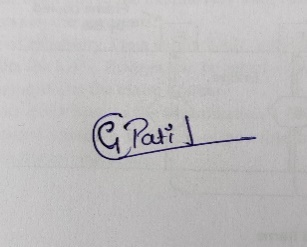 G Patil